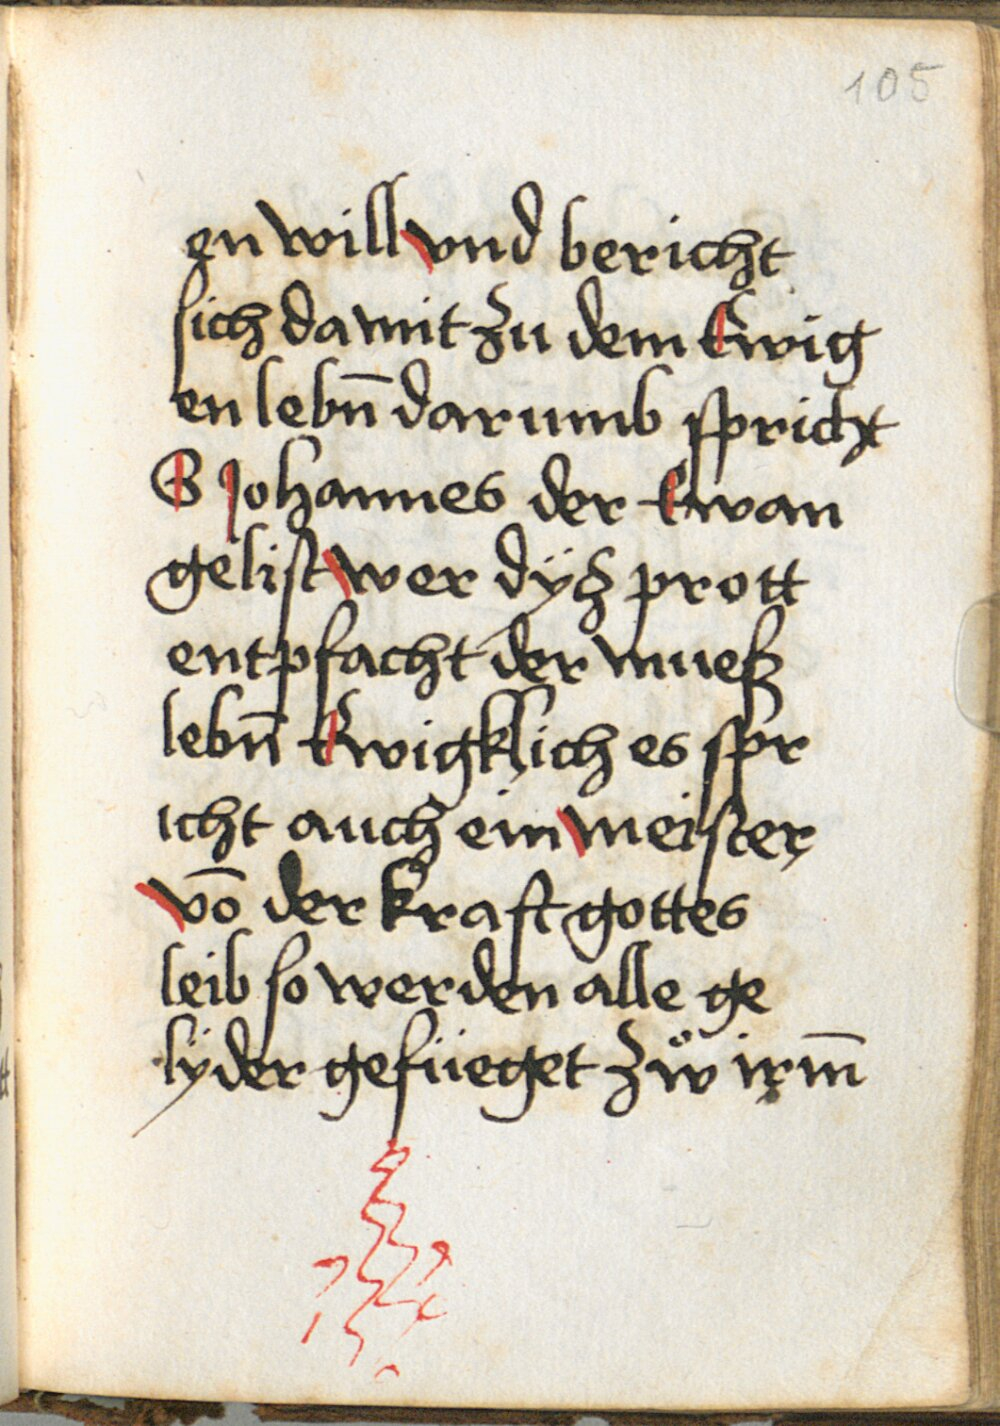 105
en will vnd bericht
sich damit zu dem Ewig
en lebn̄ darumb spricht
S Johannes der Ewan
gelist wer dÿß prott
entpfacht der mueß
lebn̄ Ewigklich es spr
icht auch ein meister
vō der kraft gottes
leib so werden alle ge
lyder gefüeget zů irm̄